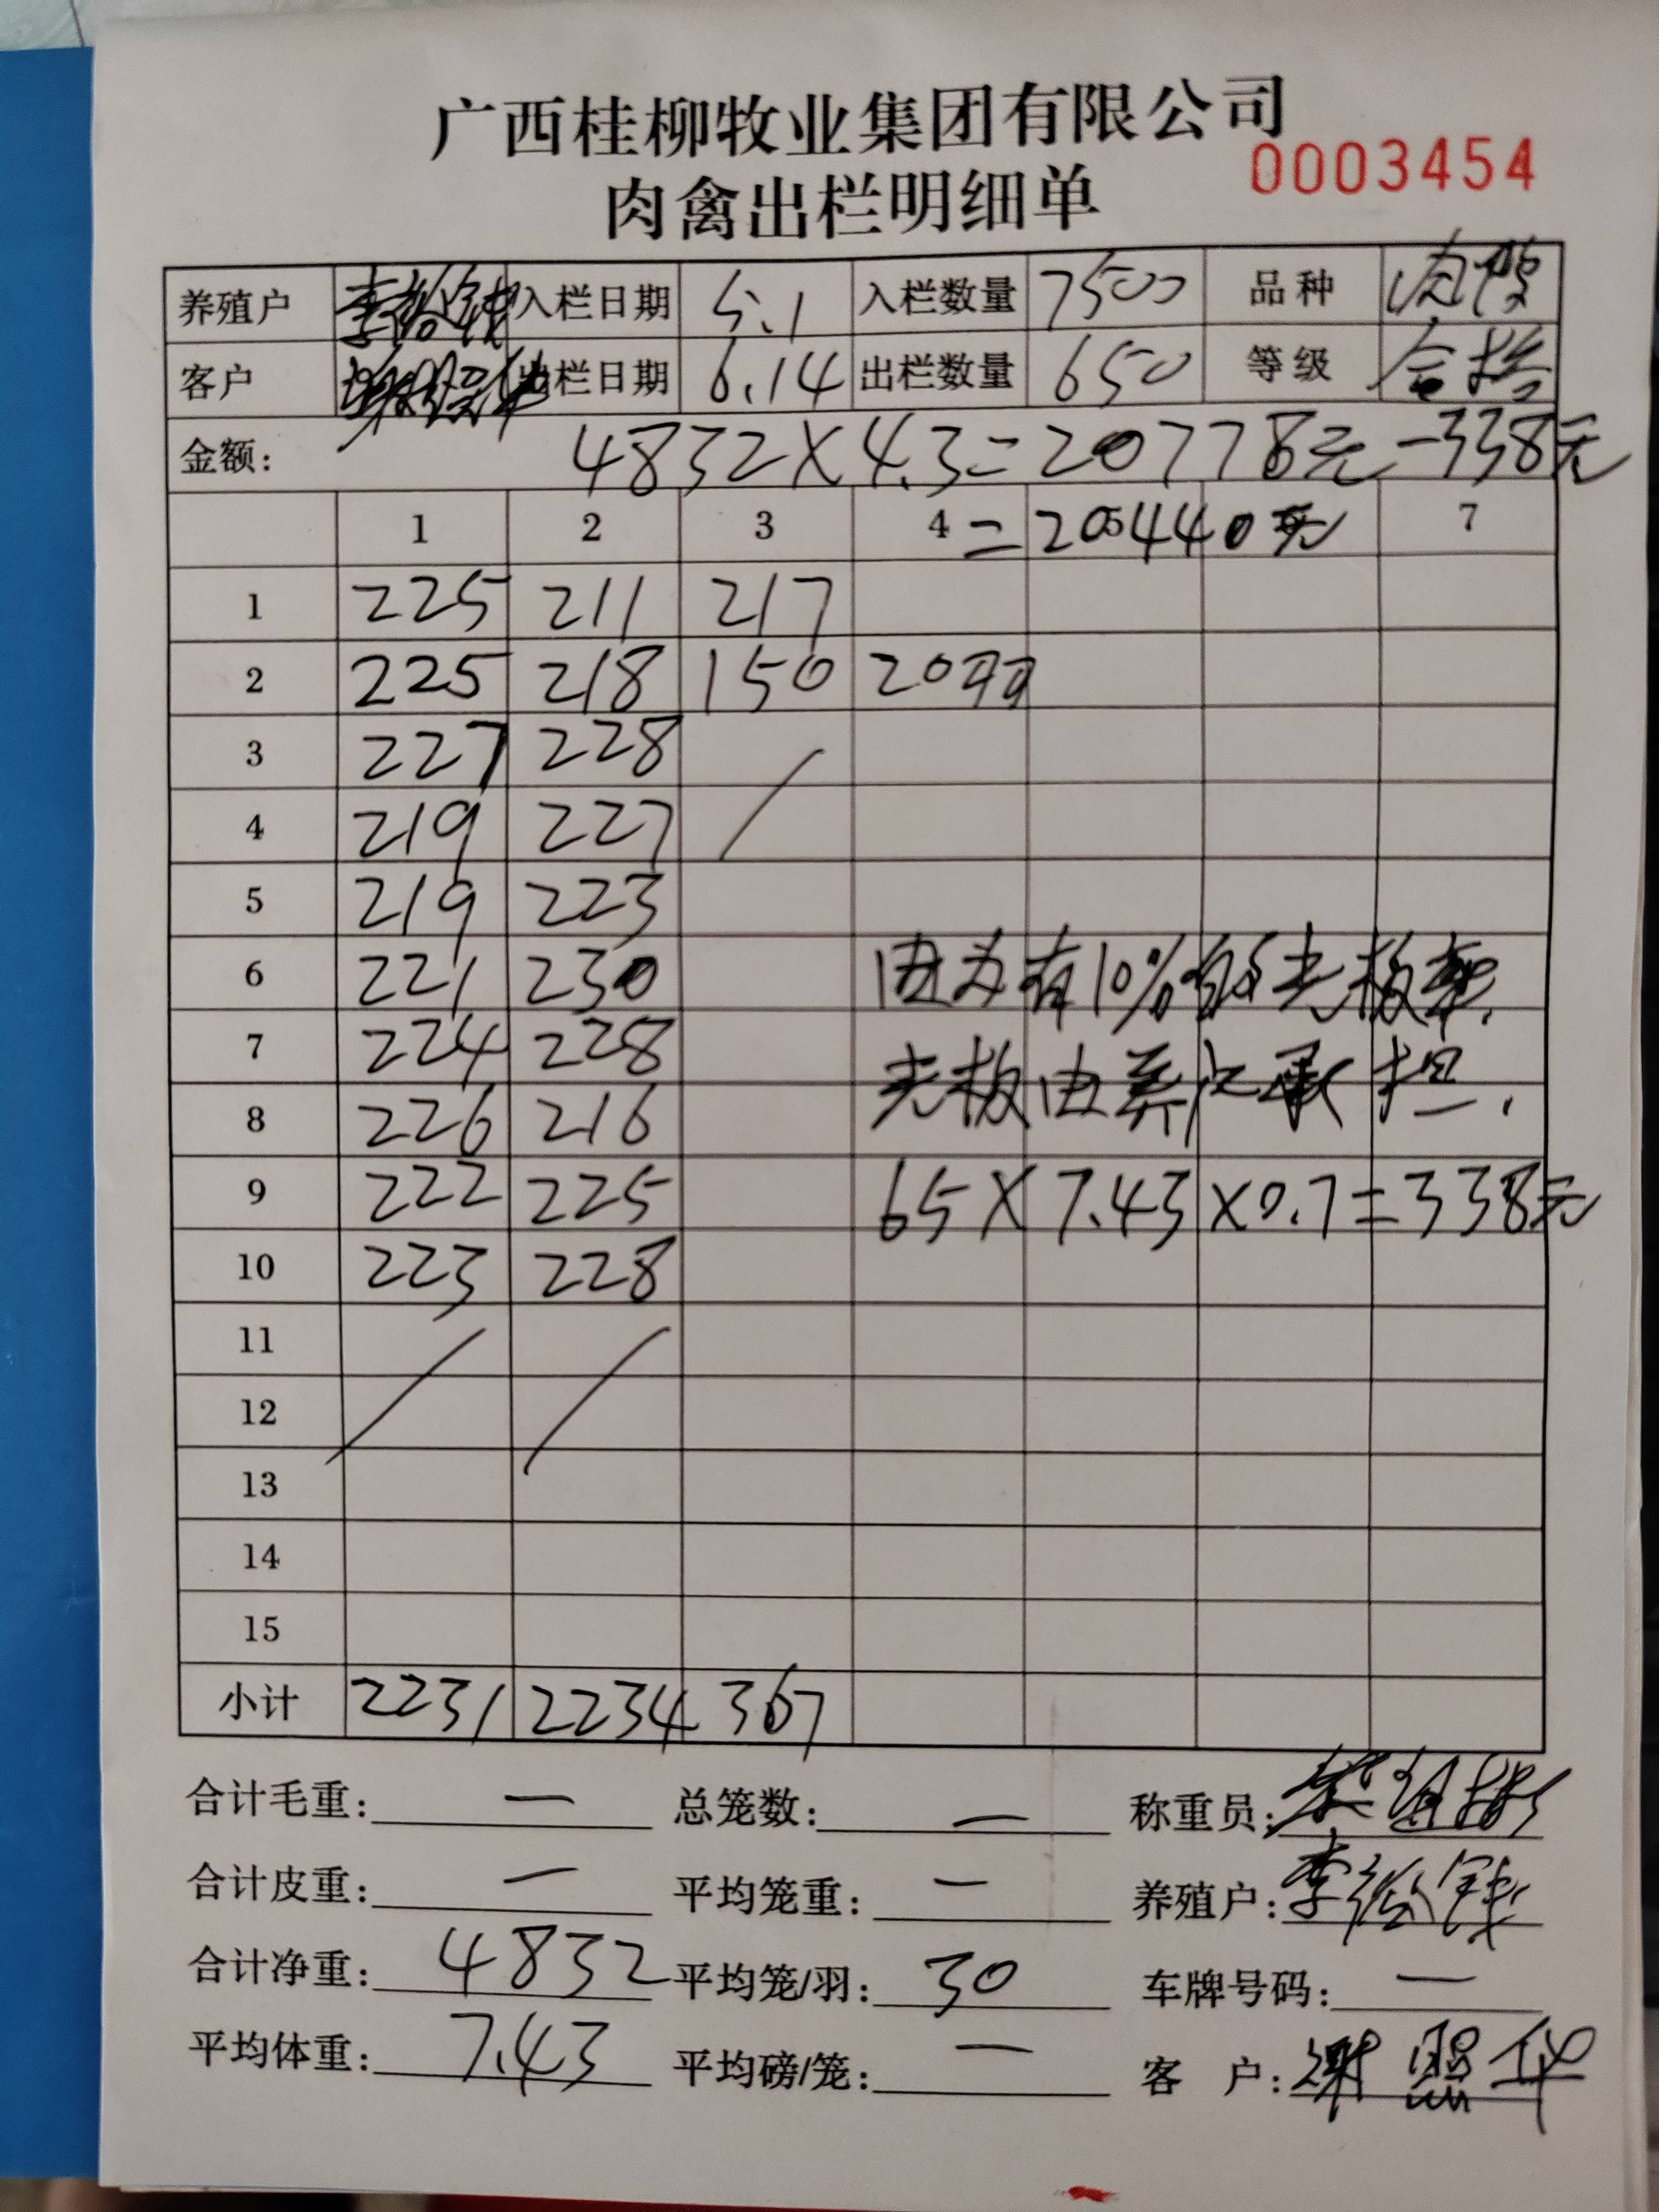 广西桂柳牧业集团有限公司
0003454
肉禽出栏明细单
养殖户 入栏日期 5.1 入栏数量 7500 品种 肉鸭
客户 出栏日期 6.14 出栏数量 650 等级 合格
金额: 4832×4.3=20778元-338元
1 2 3 4 =20440元 7
1 225 211 217
2 225 218 150 20羽
3 227 228
4 219 227
5 219 223
6 221 230 因为有10%的光板率.
7 224 228
8 226 216 光板由养户承担.
9 222 225 65×7.43×0.7=338元
10 223 228
11
12
13
14
15
小计 2231 2234 367
合计毛重: — 总笼数: — 称重员:
合计皮重: — 平均笼重: — 养殖户: 李
合计净重: 4832 平均笼/羽: 30 车牌号码: —
平均体重: 7.43 平均磅/笼: — 客 户: 谢照华